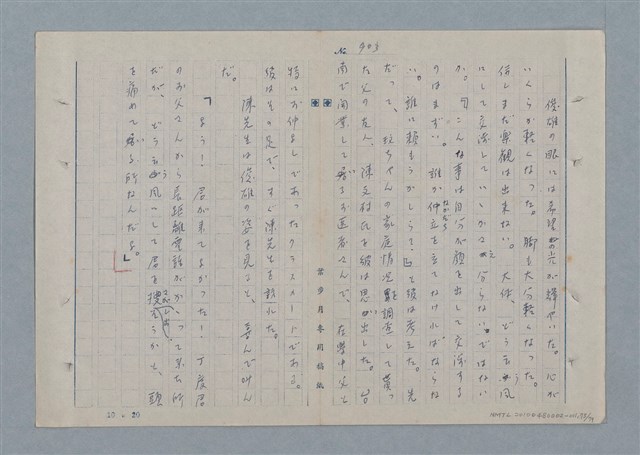 № 903
俊雄の眼には希望の光が輝やいた。心が
いくらか軽くなった。脚も大分軽くなった。
併しまだ楽観は出来ない。大体、どう云う風
にして交渉していくか分らないではない
か。「こんな事は自分が顔を出して交渉する
のはまずい。誰か仲立を立てなければならな
い。誰に頼もうかしら?」と彼は考えた。先
だって、ちゃんの家庭情況を調査して貰っ
た父の友人、陳文村氏を彼は思い出した。台
南で開業して居るお医者さんで、在学中父と
葉步月專用稿紙
特にお仲よしであったクラスメートである。
彼はその足で、すぐ陳先生を訪れた。
陳先生は俊雄の姿を見ると、喜んで叫ん
だ。
「よう!君が来てよかった!丁度君
のお父さんから長距離電話がかかって来た所
だが、どう云う風にして君を捜そうかと、頭
を痛めて居る所なんだよ。」
20×20